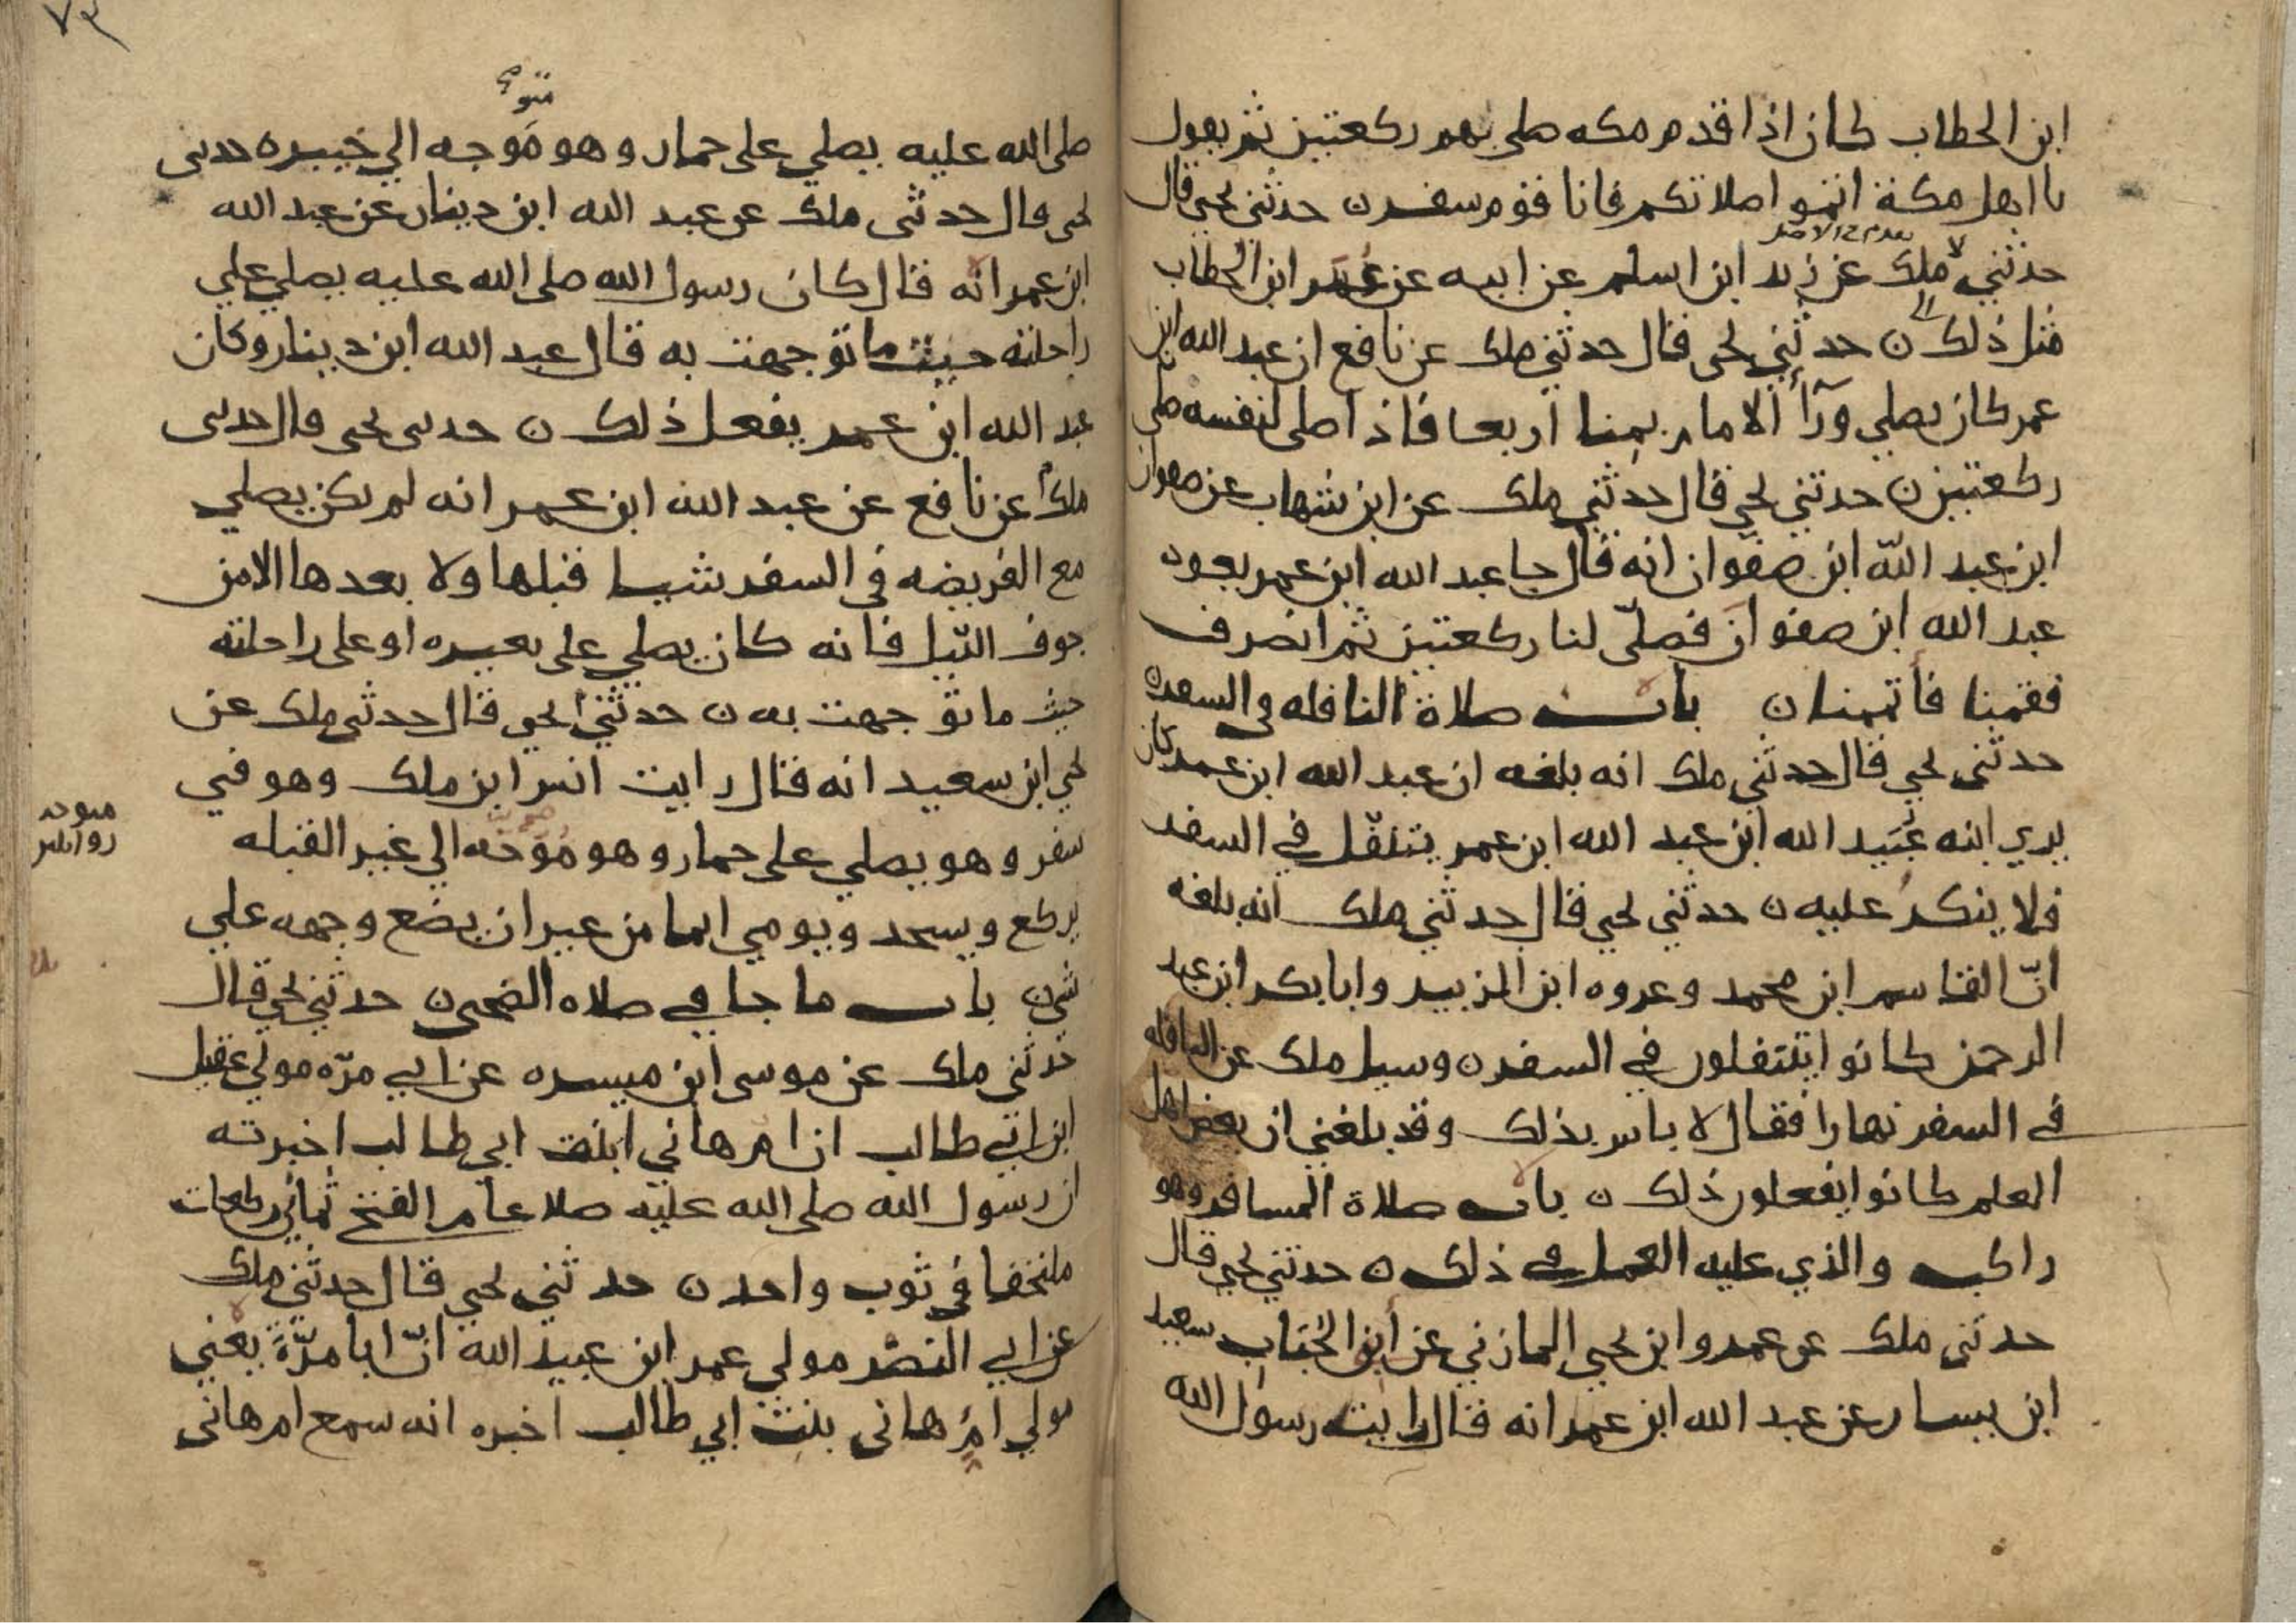 ابن الخطاب كان اذا قدم مكه صلى بهم ركعتين ثم يقول
يا اهل مكة اتموا صلاتكم فانا قوم سفر ن حدثني يحيى قال
حدثني ملك عن زيد ابن اسلم عن ابيه عن عمر ابن الخطاب
مثل ذلك ن حدثني يحيى قال حدثني ملك عن نافع ان عبد الله ابن
عمر كان يصلي ورآ الامام بمنا اربعا فاذا صلى لنفسه صلى
ركعتين ن حدثني يحيى قال حدثني ملك عن ابن شهاب عن صفوان
ابن عبد الله ابن صفوان انه قال جا عبد الله ابن عمر يعود
عبد الله ابن صفوان فصلّى لنا ركعتين ثم انصرف
فقمنا فأتممنا ن باب صلاة النافله في السفر ن
حدثني يحيى قال حدثني ملك انه بلغه ان عبد الله ابن عمر كان
يري ابنه عُبَيد الله ابن عبد الله ابن عمر يتنفّل في السفر
فلا ينكر عليه ن حدثني يحيى قال حدثني ملك انه بلغه
انّ القاسم ابن محمد وعروه ابن الزبير وابا بكر ابن عبد
الرحمن كانوا يتنفلون في السفر ن وسيل ملك عن النافله
في السفر نهارا فقال لا باس بذلك وقد بلغني ان بعض اهل
العلم كانوا يفعلون ذلك ن باب صلاة المسافر وهو
راكب والذي عليه العمل في ذلك ن حدثني يحيى قال
حدثني ملك عن عمرو ابن يحيى المازني عن ابي الحُبَاب سعيد
ابن يسار عن عبد الله ابن عمر انه قال رايت رسول الله
٧٣
متو
صلى الله عليه يصلي على حمار وهو مُوَجه الي خيبر ه حدثني
يحيى قال حدثني ملك عن عبد الله ابن دينار عن عبد الله
ابن عمر انه قال كان رسول الله صلى الله عليه يصلي علي
راحلته حيث ما توجهت به قال عبد الله ابن دينار وكان
عبد الله ابن عمر يفعل ذلك ن حدثني يحيى قال حدثني
ملك عن نافع عن عبد الله ابن عمر انه لم يكن يصلي
مع الفريضه في السفر شيا قبلها ولا بعدها الا من
جوف الليل فانه كان يصلي على بعيره او على راحلته
حيث ما توجهت به ن حدثني يحيى قال حدثني ملك عن
يحيى ابن سعيد انه قال رايت انس ابن ملك وهو في
سفر وهو يصلي على حمار وهو مُوَجّه الي غير القبله
متوجه
يركع ويسجد ويومي ايما من غير ان يضع وجهه علي
شي ن باب ما جا في صلاه الضحى ن حدثني يحيى قال
حدثني ملك عن موسى ابن ميسره عن ابي مرّه مولى عقيل
ابن ابي طالب ان ام هاني ابنت ابي طالب اخبرته
ان رسول الله صلى الله عليه صلا عام الفتح ثماني ركعات
ملتحفا في ثوب واحد ن حدثني يحيى قال حدثني ملك
عن ابي النضر مولى عمر ابن عبيد الله انّ ابا مرّةَ يعني
مولي امِّ هاني بنت ابي طالب اخبره انه سمع ام هاني